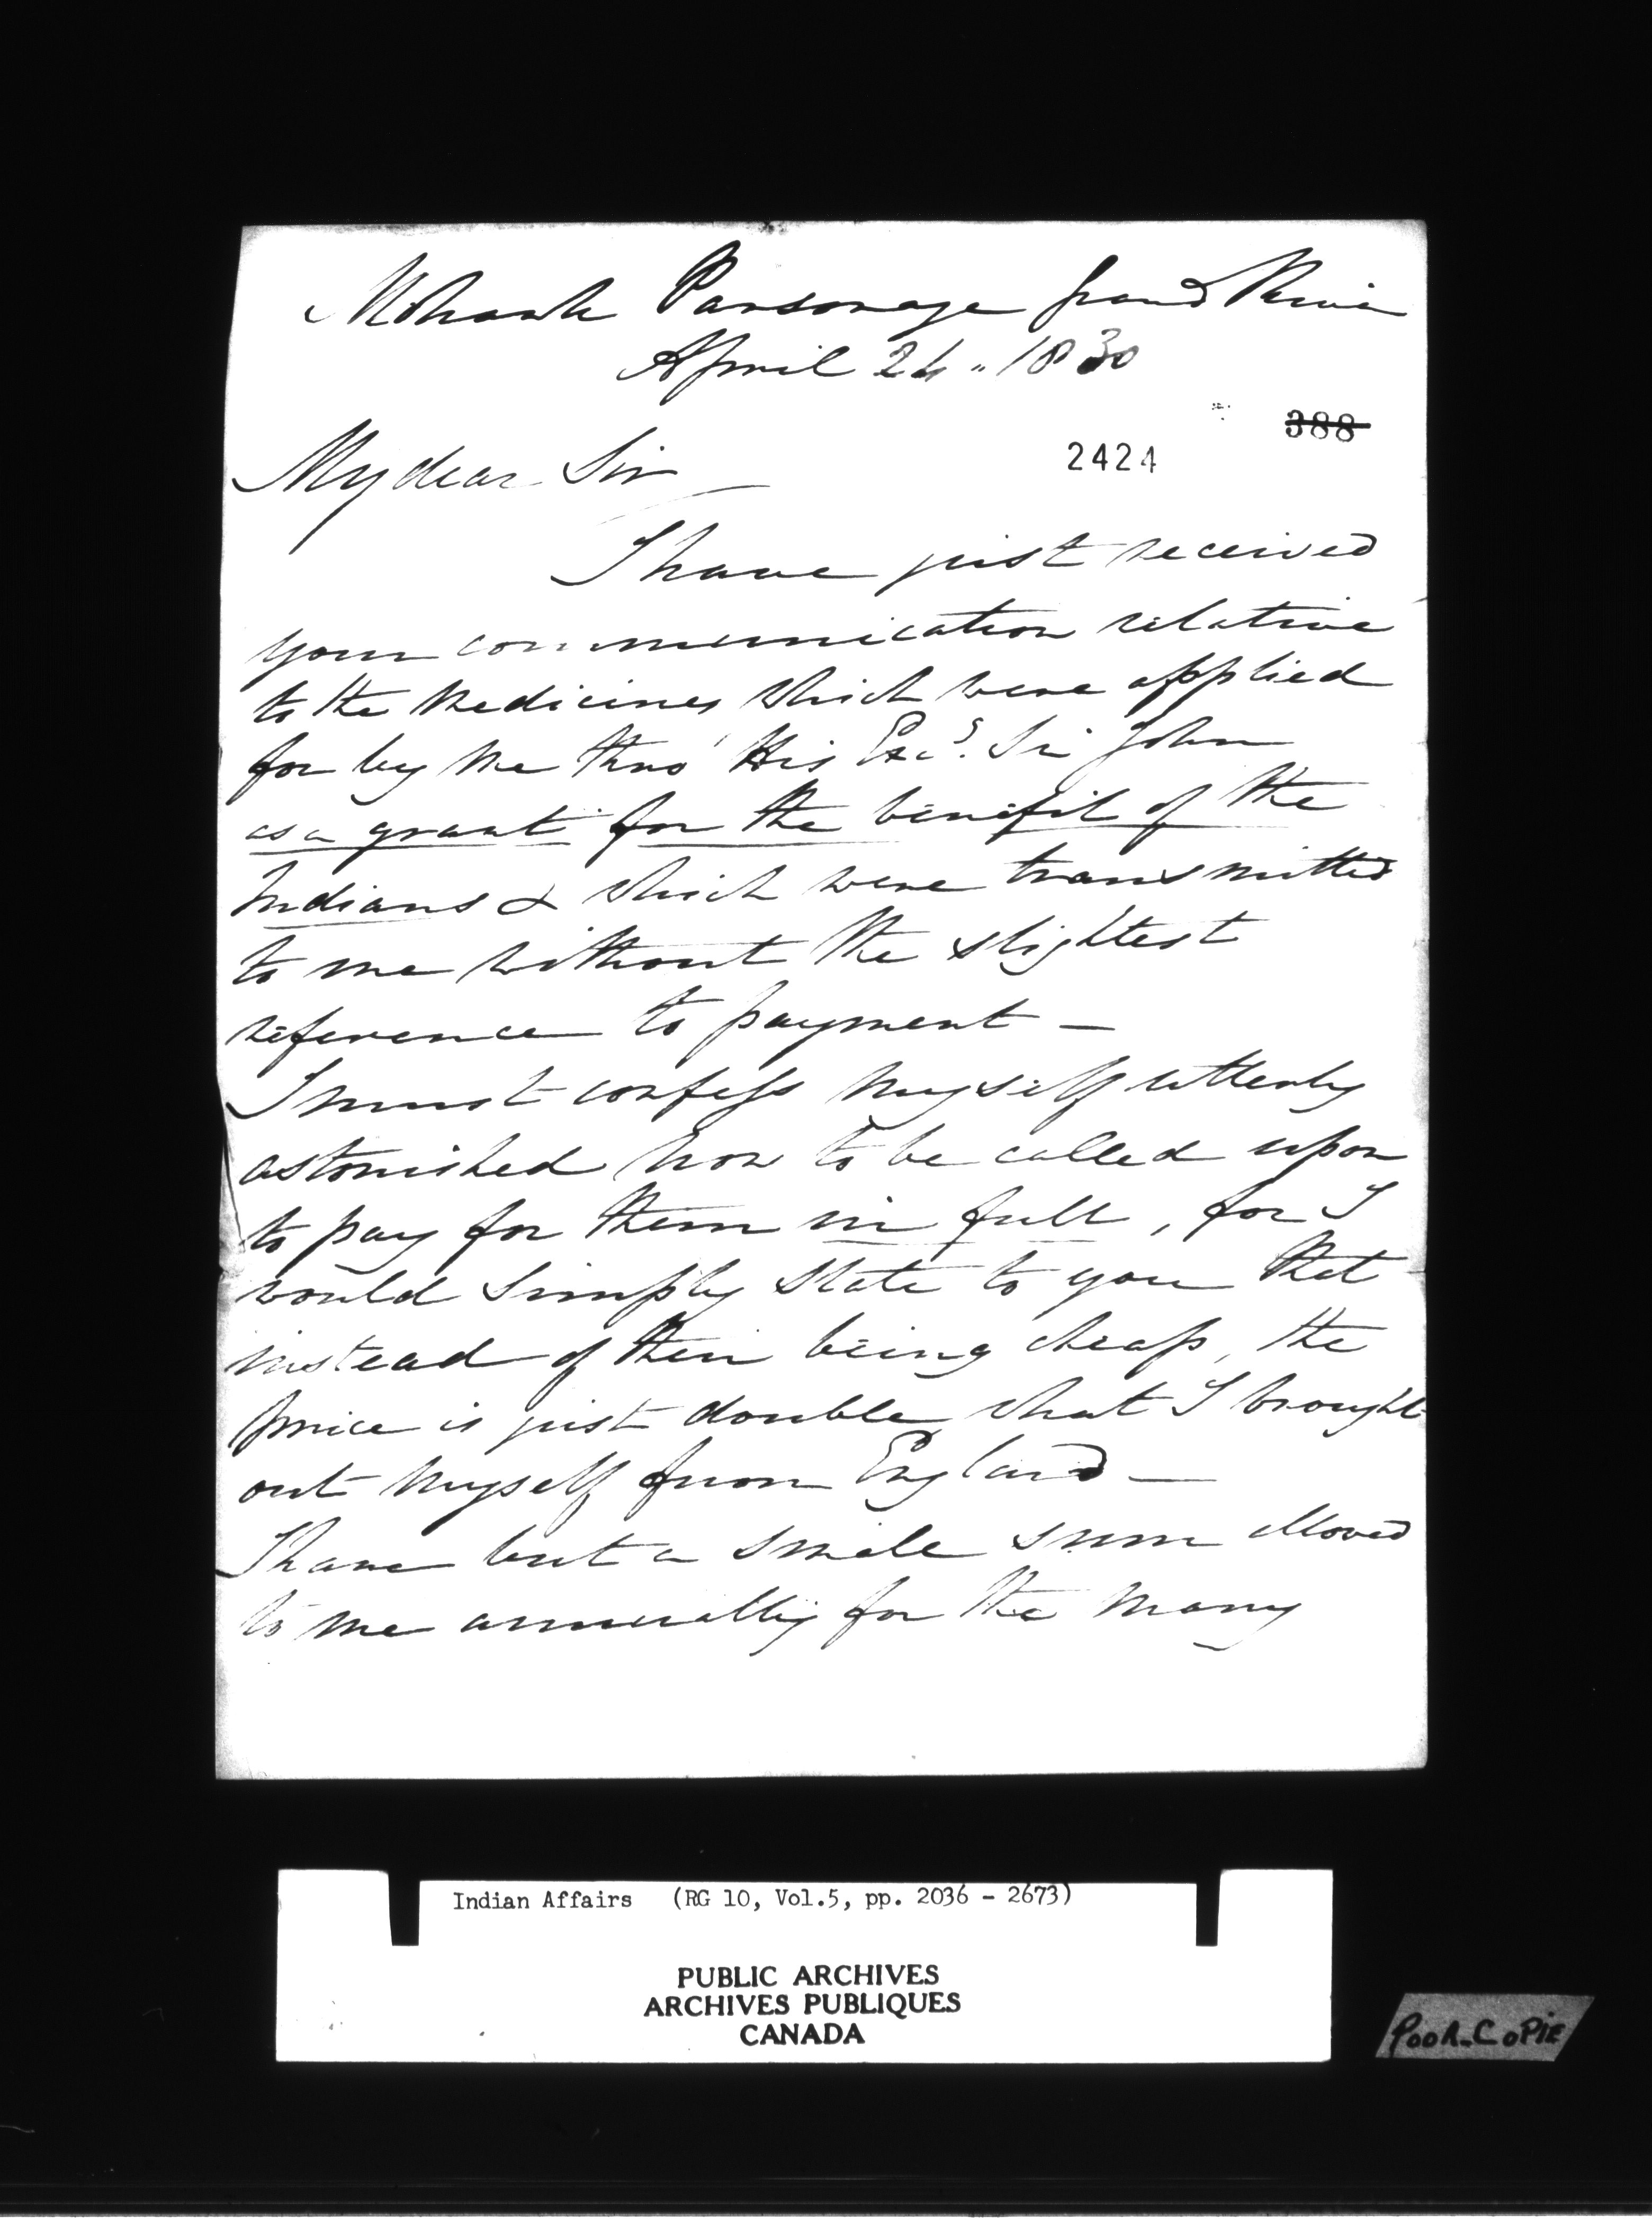 Mohawk Parsonage Grand River
April 24 .. 1830
388
2424
My dear Sir
I have just received
your communication relative
to the Medicines which were applied
for by me thro' His Excy. Sir John
as a grant for the benefit of the
Indians & which were transmitted
to me without the slightest
reference to payment —
I must confess myself utterly
astonished now to be called upon
to pay for them in full, for I
would simply state to you that
instead of their being cheap, the
price is just double what I brought
out myself from England —
I have but a small sum allowed
to me annually for the many
Indian Affairs (RG 10, Vol.5, pp. 2036 - 2673)
PUBLIC ARCHIVES
ARCHIVES PUBLIQUES
CANADA
POOR COPIE